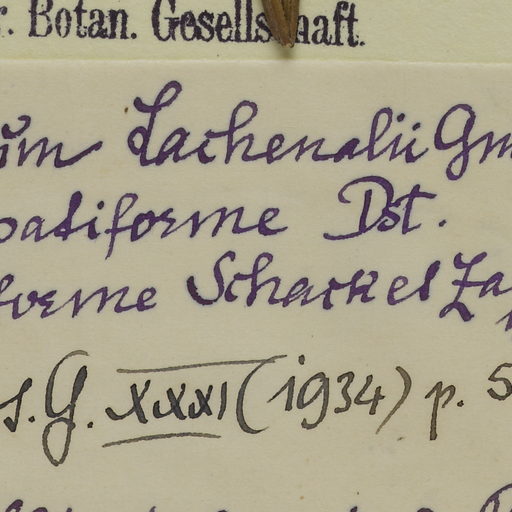 r. Botan. Gesellschaft.
ŭm Lachenalii Gm
patiforme Dst.
forme Schack et Za
s. G. XXXI (1934) p. 5